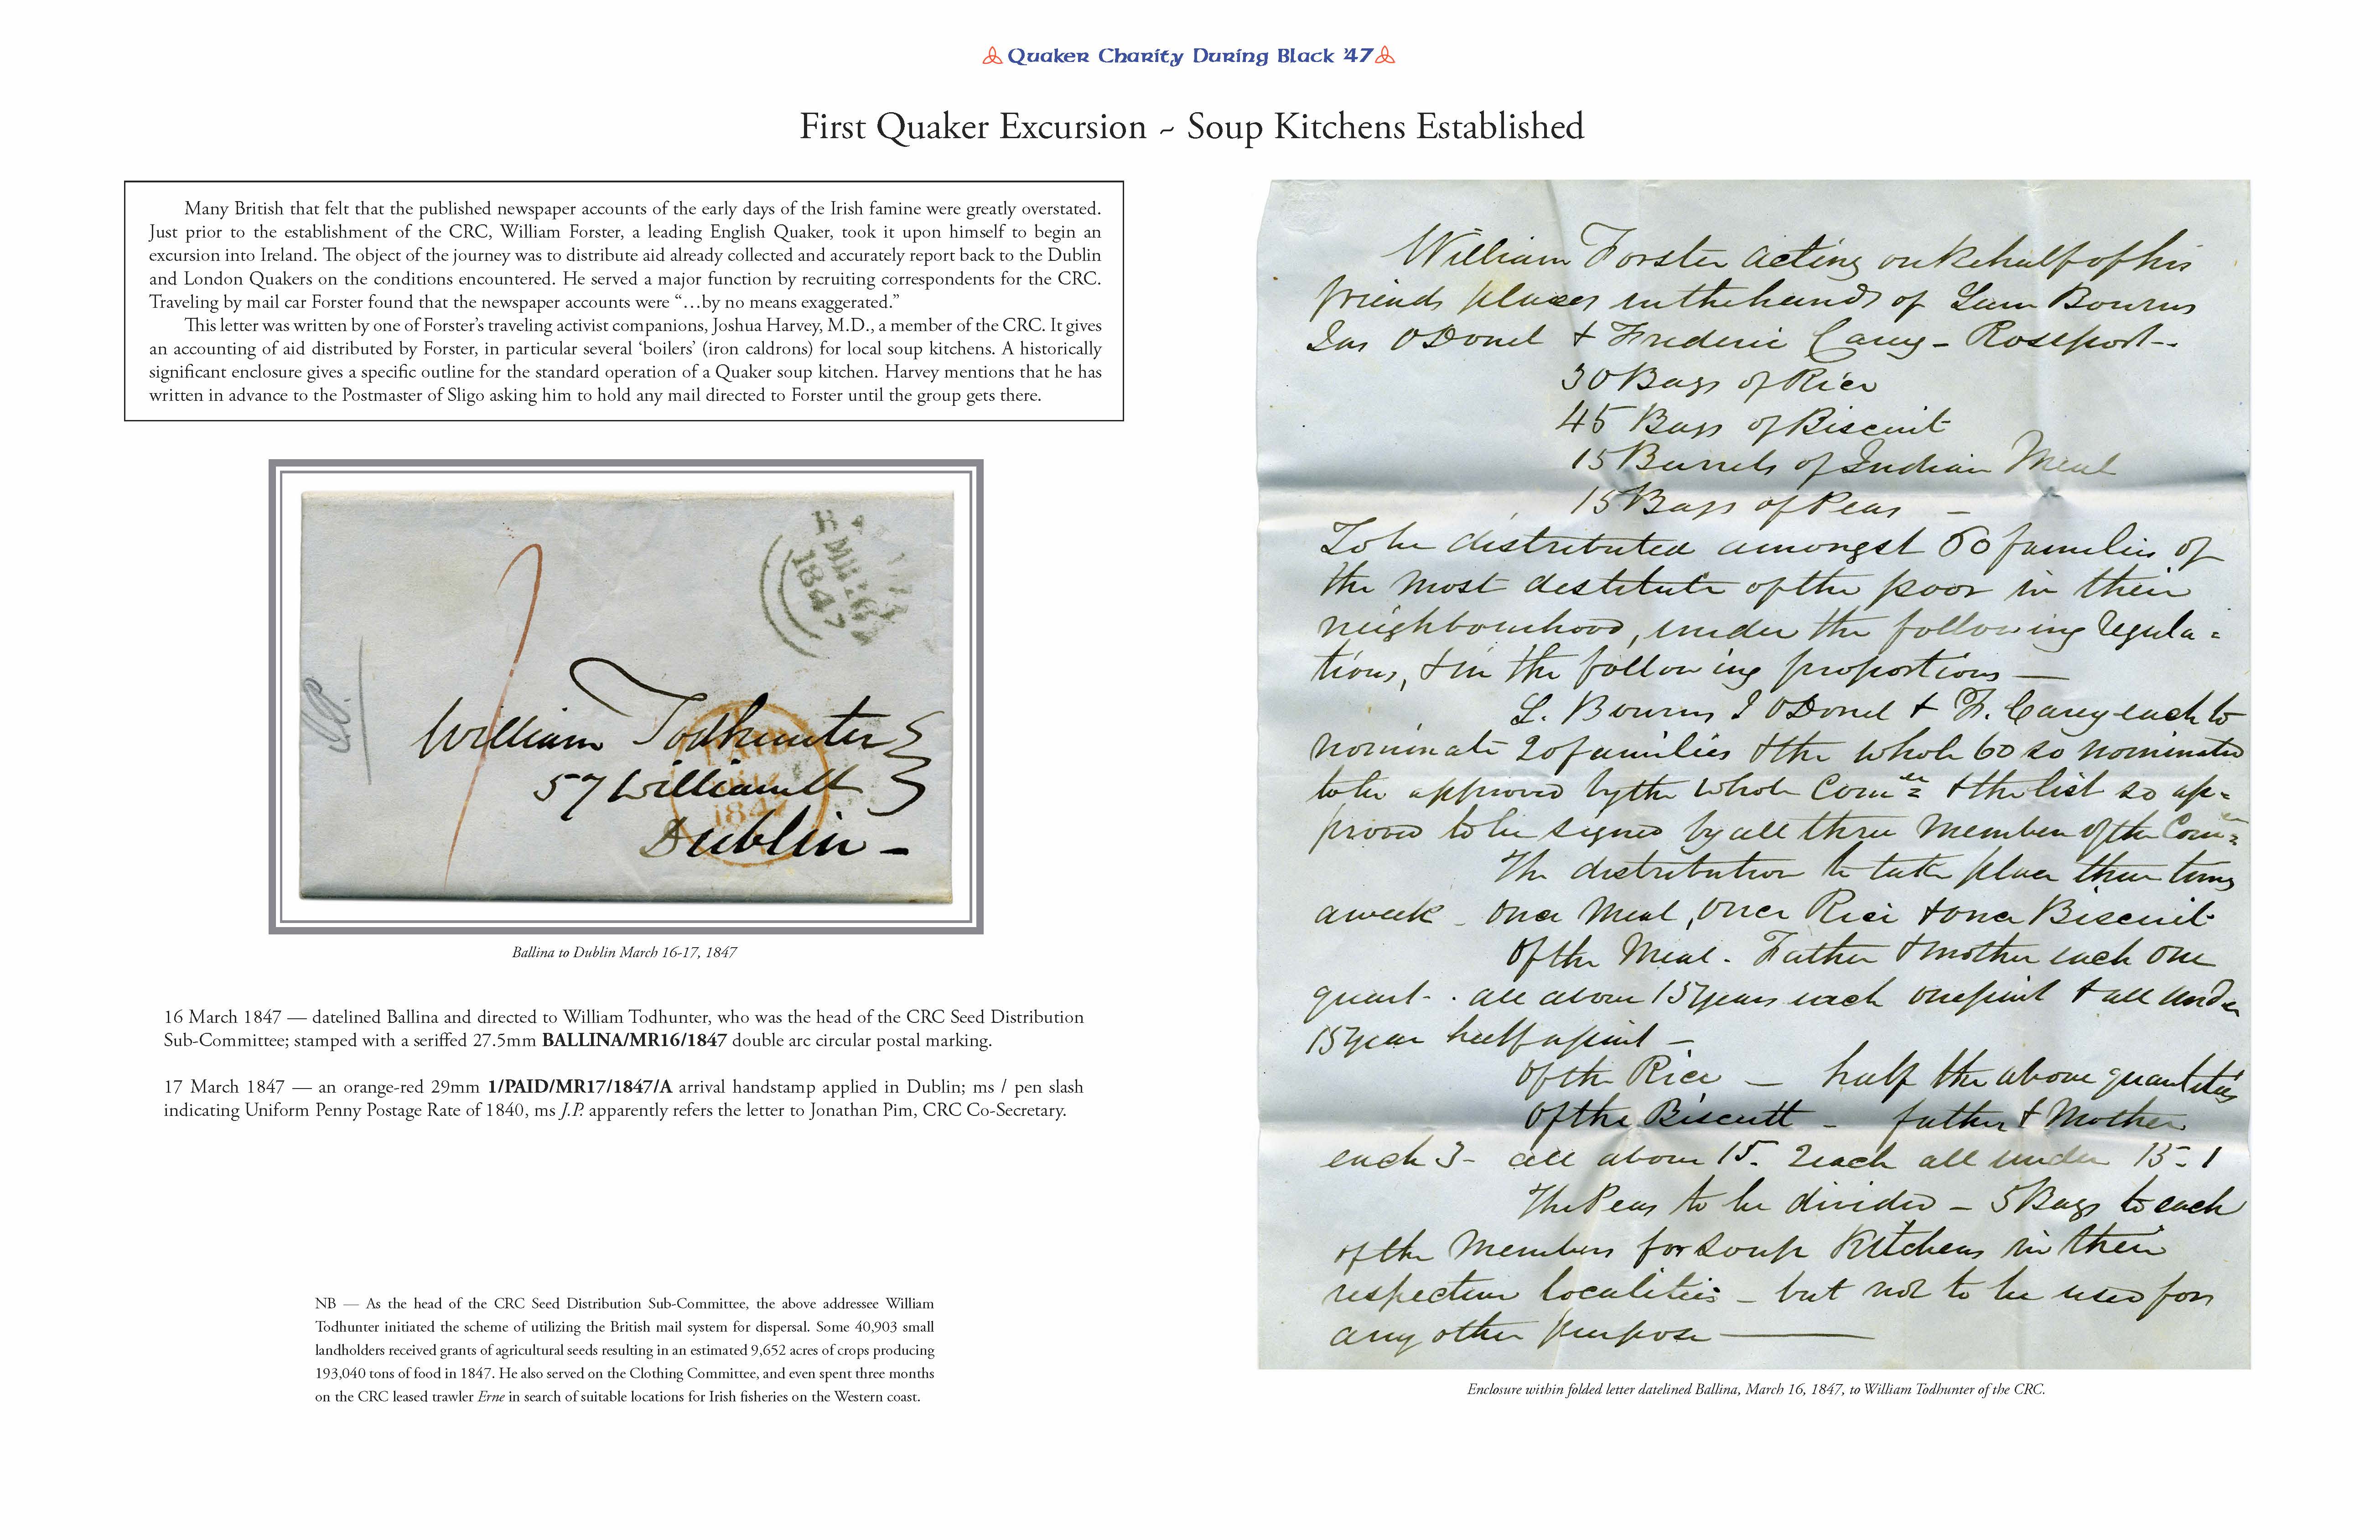 Quaker Charity During Black '47
First Quaker Excursion ~ Soup Kitchens Established
Many British that felt that the published newspaper accounts of the early days of the Irish famine were greatly overstated.
Just prior to the establishment of the CRC, William Forster, a leading English Quaker, took it upon himself to begin an
excursion into Ireland. The object of the journey was to distribute aid already collected and accurately report back to the Dublin
and London Quakers on the conditions encountered. He served a major function by recruiting correspondents for the CRC.
Traveling by mail car Forster found that the newspaper accounts were “…by no means exaggerated.”
This letter was written by one of Forster’s traveling activist companions, Joshua Harvey, M.D., a member of the CRC. It gives
an accounting of aid distributed by Forster, in particular several ‘boilers’ (iron caldrons) for local soup kitchens. A historically
significant enclosure gives a specific outline for the standard operation of a Quaker soup kitchen. Harvey mentions that he has
written in advance to the Postmaster of Sligo asking him to hold any mail directed to Forster until the group gets there.
MR 16
1847
J.P.
William Todhunter
57 William St
Dublin -
PAID
1847
Ballina to Dublin March 16-17, 1847
16 March 1847 — datelined Ballina and directed to William Todhunter, who was the head of the CRC Seed Distribution
Sub-Committee; stamped with a seriffed 27.5mm BALLINA/MR16/1847 double arc circular postal marking.
17 March 1847 — an orange-red 29mm 1/PAID/MR17/1847/A arrival handstamp applied in Dublin; ms / pen slash
indicating Uniform Penny Postage Rate of 1840, ms J.P. apparently refers the letter to Jonathan Pim, CRC Co-Secretary.
NB — As the head of the CRC Seed Distribution Sub-Committee, the above addressee William
Todhunter initiated the scheme of utilizing the British mail system for dispersal. Some 40,903 small
landholders received grants of agricultural seeds resulting in an estimated 9,652 acres of crops producing
193,040 tons of food in 1847. He also served on the Clothing Committee, and even spent three months
on the CRC leased trawler Erne in search of suitable locations for Irish fisheries on the Western coast.
William Forster acting on behalf of his
friends places in the hands of Bourns
Jas ODonel & Frederic Carey - Roseport -
30 Bags of Rice
45 Bags of Biscuit
15 Barrels of Indian Meal
15 Bags of Peas -
To be distributed amongst 60 families of
the most destitute of the poor in their
neighbourhood, under the following regula =
tions, & in the following proportions —
L. Bourns J ODonel & F. Carey each to
nominate 20 families & the whole 60 so nominated
to be approved by the whole Comee & the list so ap =
proved to be signed by all three Members of the Comee
The distribution to take place three times
a week - once Meal, once Rice & once Biscuit
Of the Meal - Father & mother each one
quart - all above 15 years each one pint & all under
15 year half a pint -
Of the Rice — half the above quantities
Of the Biscuit - father & Mother
each 3 - all above 15. 2 each all under 15 - 1
The Peas to be divided - 5 Bags to each
of the Members for Soup Kitchens in their
respective localities - but not to be used for
any other purpose —
Enclosure within folded letter datelined Ballina, March 16, 1847, to William Todhunter of the CRC.